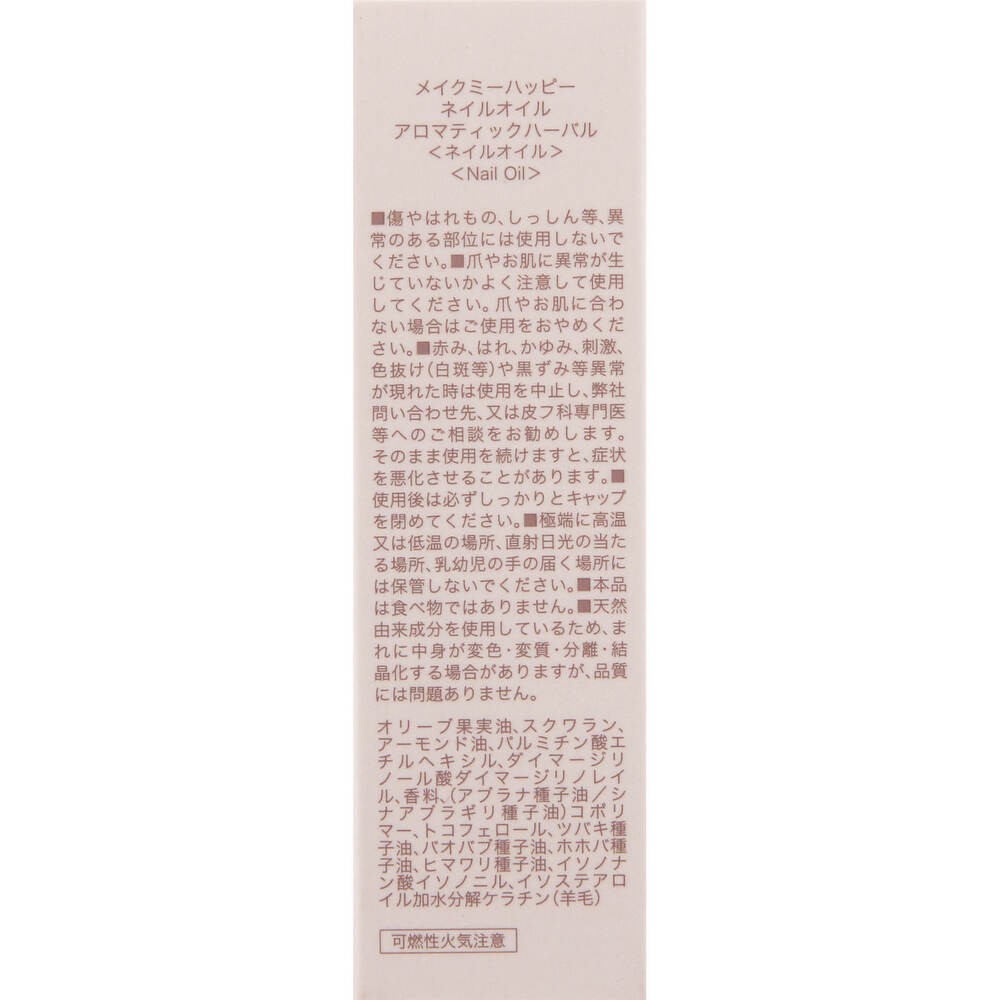 メイクミーハッピー
ネイルオイル
アロマティックハーバル
＜ネイルオイル＞
＜Nail Oil＞
■傷やはれもの、しっしん等、異
常のある部位には使用しないで
ください。■爪やお肌に異常が生
じていないかよく注意して使用
してください。爪やお肌に合わ
ない場合はご使用をおやめくだ
さい。■赤み、はれ、かゆみ、刺激、
色抜け（白斑等）や黒ずみ等異常
が現れた時は使用を中止し、弊社
問い合わせ先、又は皮フ科専門医
等へのご相談をお勧めします。
そのまま使用を続けますと、症状
を悪化させることがあります。■
使用後は必ずしっかりとキャップ
を閉めてください。■極端に高温
又は低温の場所、直射日光の当た
る場所、乳幼児の手の届く場所に
は保管しないでください。■本品
は食べ物ではありません。■天然
由来成分を使用しているため、ま
れに中身が変色・変質・分離・結
晶化する場合がありますが、品質
には問題ありません。
オリーブ果実油、スクワラン、
アーモンド油、パルミチン酸エ
チルヘキシル、ダイマージリ
ノール酸ダイマージリノレイ
ル、香料、（アブラナ種子油／シ
ナアブラギリ種子油）コポリ
マー、トコフェロール、ツバキ種
子油、バオバブ種子油、ホホバ種
子油、ヒマワリ種子油、イソノナ
ン酸イソノニル、イソステアロ
イル加水分解ケラチン（羊毛）
可燃性火気注意